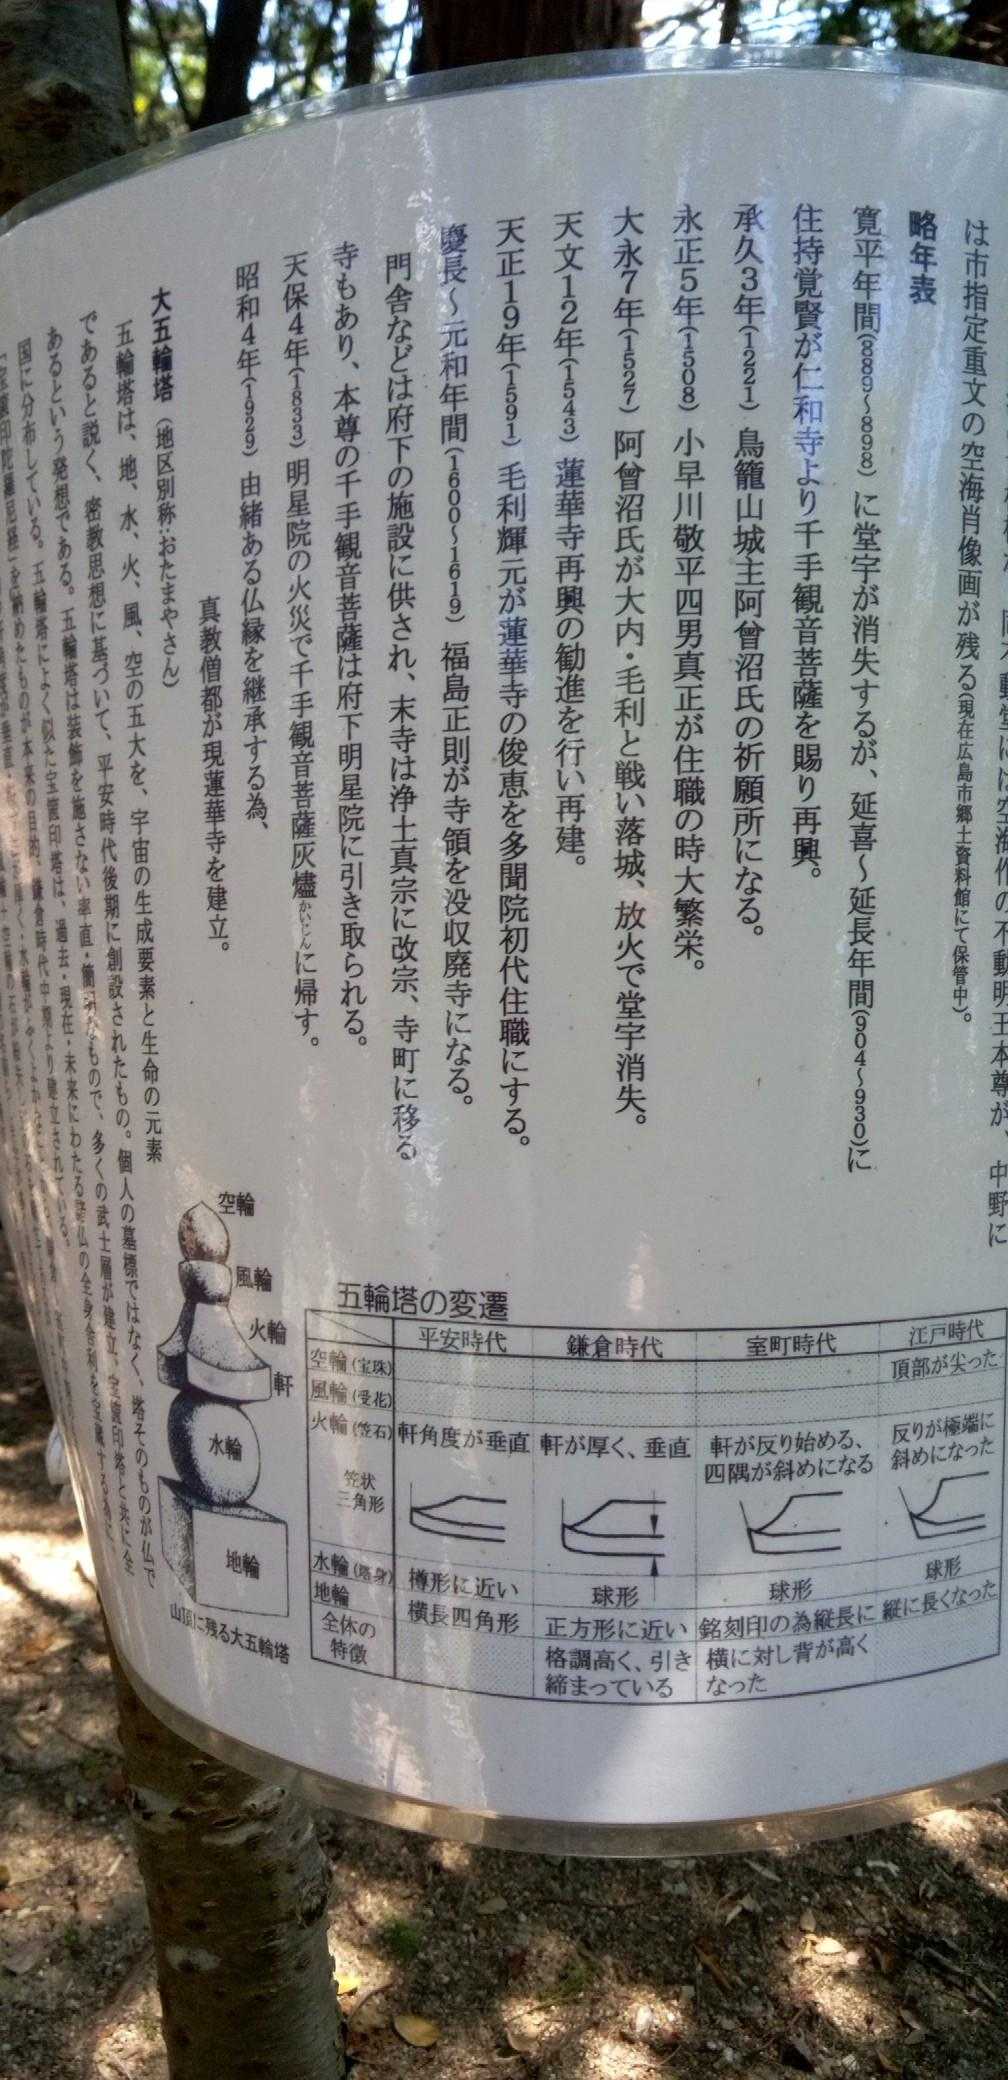 動堂には空海作の不動明王本尊が、中野に
は市指定重文の空海肖像画が残る(現在広島市郷土資料館にて保管中)。
略年表
寛平年間(889〜898) に堂宇が消失するが、延喜〜延長年間(904〜930)に
住持覚賢が仁和寺より千手観音菩薩を賜り再興。
承久3年(1221) 鳥籠山城主阿曽沼氏の祈願所になる。
永正5年(1508) 小早川敬平四男真正が住職の時大繁栄。
大永7年(1527) 阿曾沼氏が大内・毛利と戦い落城、放火で堂宇消失。
天文12年(1543) 蓮華寺再興の勧進を行い再建。
天正19年(1591) 毛利輝元が蓮華寺の俊恵を多聞院初代住職にする。
慶長〜元和年間(1600〜1619) 福島正則が寺領を没収廃寺になる。
門舎などは府下の施設に供され、末寺は浄土真宗に改宗、寺町に移る
寺もあり、本尊の千手観音菩薩は府下明星院に引き取られる。
天保4年(1833) 明星院の火災で千手観音菩薩灰燼かいじんに帰す。
昭和4年(1929) 由緒ある仏縁を継承する為、
真教僧都が現蓮華寺を建立。
大五輪塔 (地区別称:おたまやさん)
五輪塔は、地、水、火、風、空の五大を、宇宙の生成要素と生命の元素
であると説く、密教思想に基づいて、平安時代後期に創設されたもの。個人の墓標ではなく、塔そのものが仏で
あるという発想である。五輪塔は装飾を施さない率直・簡明なもので、多くの武士層が建立、宝篋印塔と共に全
国に分布している。五輪塔によく似た宝篋印塔は、過去・現在・未来にわたる諸仏の全身舎利を宝蔵する為に
「宝篋印陀羅尼経」を納めたものが本来の目的、鎌倉時代中期より建立されている。
空輪
風輪
火輪
軒
水輪
地輪
山頂に残る大五輪塔
五輪塔の変遷
平安時代 鎌倉時代 室町時代 江戸時代
空輪(宝珠) 頂部が尖った
風輪(受花)
火輪(笠石) 軒角度が垂直 軒が厚く、垂直 軒が反り始める、四隅が斜めになる 反りが極端に斜めになった
笠状
三角形
水輪(塔身) 樽形に近い 球形 球形 球形
地輪 横長四角形 正方形に近い 銘刻印の為縦長に 縦に長くなった
全体の特徴 格調高く、引き締まっている 横に対し背が高くなった